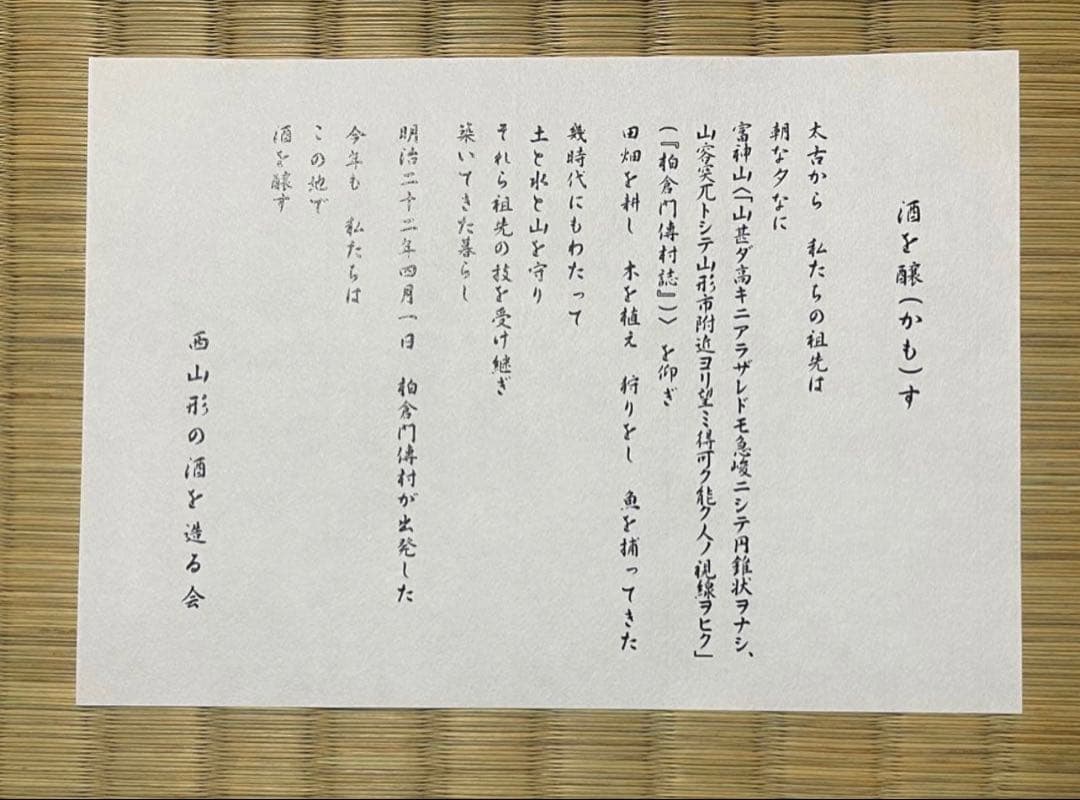 酒を醸(かも)す
太古から　私たちの祖先は
朝な夕なに
富神山〈「山甚ダ高キニアラザレドモ急峻ニシテ円錐状ヲナシ、
山容突兀トシテ山形市附近ヨリ望ミ得可ク能ク人ノ視線ヲヒク」
(『柏倉門傳村誌』)〉を仰ぎ
田畑を耕し　木を植え　狩りをし　魚を捕ってきた
幾時代にもわたって
土と水と山を守り
それら祖先の技を受け継ぎ
築いてきた暮らし
明治二十二年四月一日　柏倉門傳村が出発した
今年も　私たちは
この地で
酒を醸す
西山形の酒を造る会